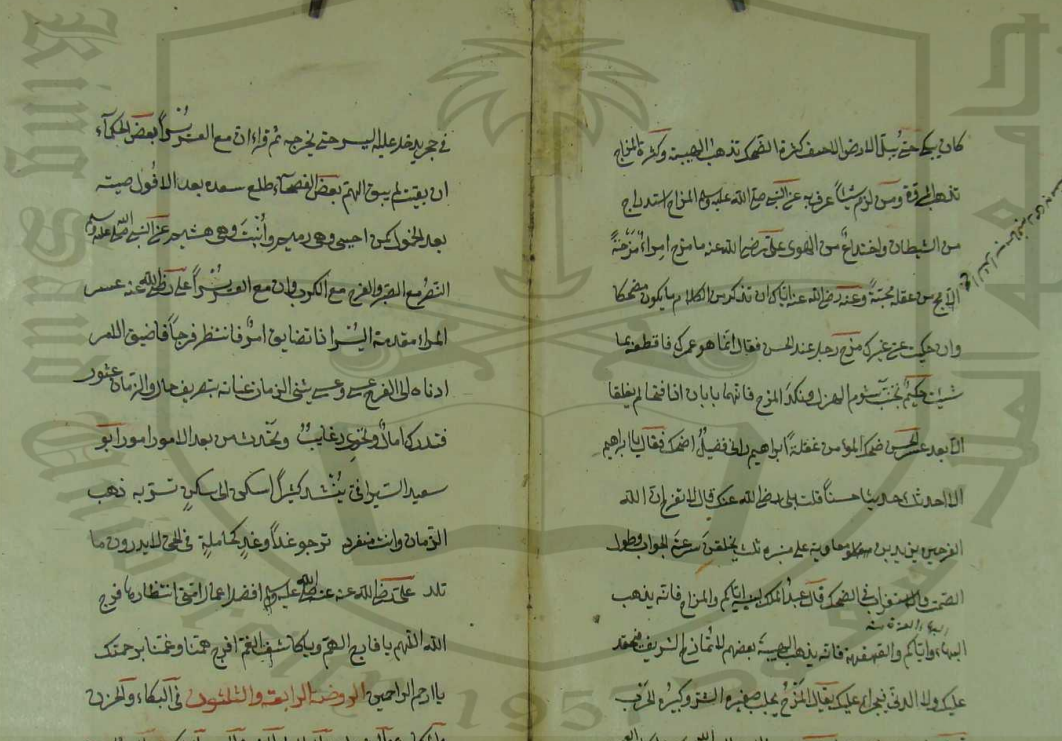 كان يبكي حتى يبل الارض الاحنف كثرة الضحك تذهب الهيبة وكثرة المزاح
تذهب المروة ومن لزم شيئا عرف به عن النبي صلى الله عليه و المزاح استدراج
من الشيطان واختداع من الهوى علي رضي الله عنه ما مزح امرء مزحة
الا مج من عقله مجة وعنه رضي الله عنه اياك ان تذكر من الكلام ما يكون مضحكا
وان حكيت عن غيرك مزح رجل عند الحسن فقال انما هو عمرك فاقطعه بما
شئت حكيم تجنب شوم الهزل ونكد المزح فانهما بابان اذا فتحا لم يغلقا
الا بعد عسر الحسن ضحك المؤمن غفلة ابراهيم رانى فضيل اضحك فقال يا ابراهيم
الا احدثك حديثا حسنا قلت بلى رضي الله عنك قال لا تفرح ان الله
الفرحين معاوية على منبره ثلث يخلقن سرعة الجواب وطول
الصمت والاستغراب في الضحك قال عبد الملك لبنيه اياكم والمزاح فانه يذهب
البهاء واياكم والقهقهة فانه يذهب الهيبة بعضهم لا تمازح الشريف فيحقد
عليك ولا الدني فيجراء عليك يقال المزح يجلب صغيره الشر وكبيره الحرب
في حجر يدخل عليه اليسر حتى يخرجه ثم قراء ان مع العسر يسرا بعض الحكماء
ان بقيت لم يبق الهم بعض الفصحاء طلع سعده بعد الافول صيته
بعد الخمول كمن احيى وهى رميم وانبت وهى هشيم عن النبي صلى الله عليه و
النصر مع الصبر والفرج مع الكرب وان مع العسر يسرا علي رضي الله عنه عسر
المراء مقدمة اليسر اذا تضايق امر فانتظر فرجا فاضيق الامر
ادناه الى الفرج عسى وعسى يثنى الزمان عنانه بتصريف حال والزمان عثور
فتدرك امال وتحوى رغايب وتحدث من بعد الامور امور ابو
سعيد السيرافى ينشد كثيرا اسكن الى سكن تسر به ذهب
الزمان وانت منفرد ترجو غدا وغد كحاملة في الحى لا يدرون ما
تلد علي رضي الله عنه عنه صلى الله عليه و افضل اعمال امتى انتظارها فرج
الله اللهم يا فارج الهم ويا كاشف الغم افرج همنا وغمنا برحمتك
يا ارحم الراحمين الروضة الرابعة والثلثون في البكاء والحزن